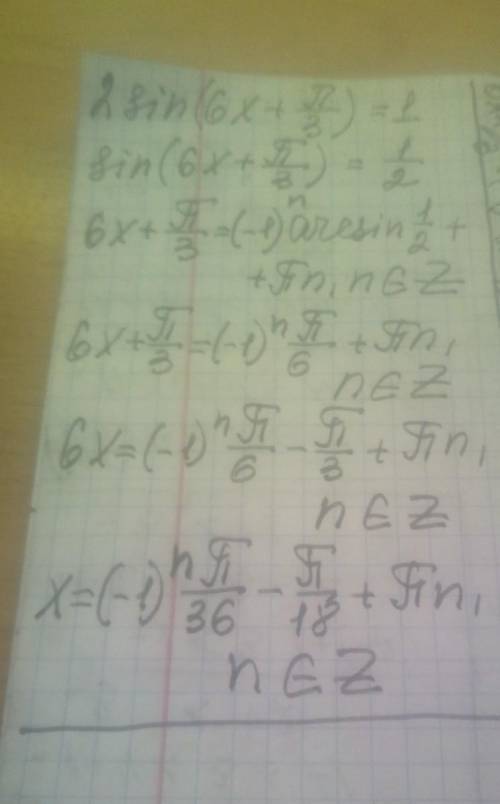 2 sin(6x + π/3) = 1
sin(6x + π/3) = 1/2
6x + π/3 = (-1)ⁿ arcsin 1/2 +
+ πn, n ∈ Z
6x + π/3 = (-1)ⁿ π/6 + πn,
n ∈ Z
6x = (-1)ⁿ π/6 - π/3 + πn,
n ∈ Z
x = (-1)ⁿ π/36 - π/18 + πn,
n ∈ Z